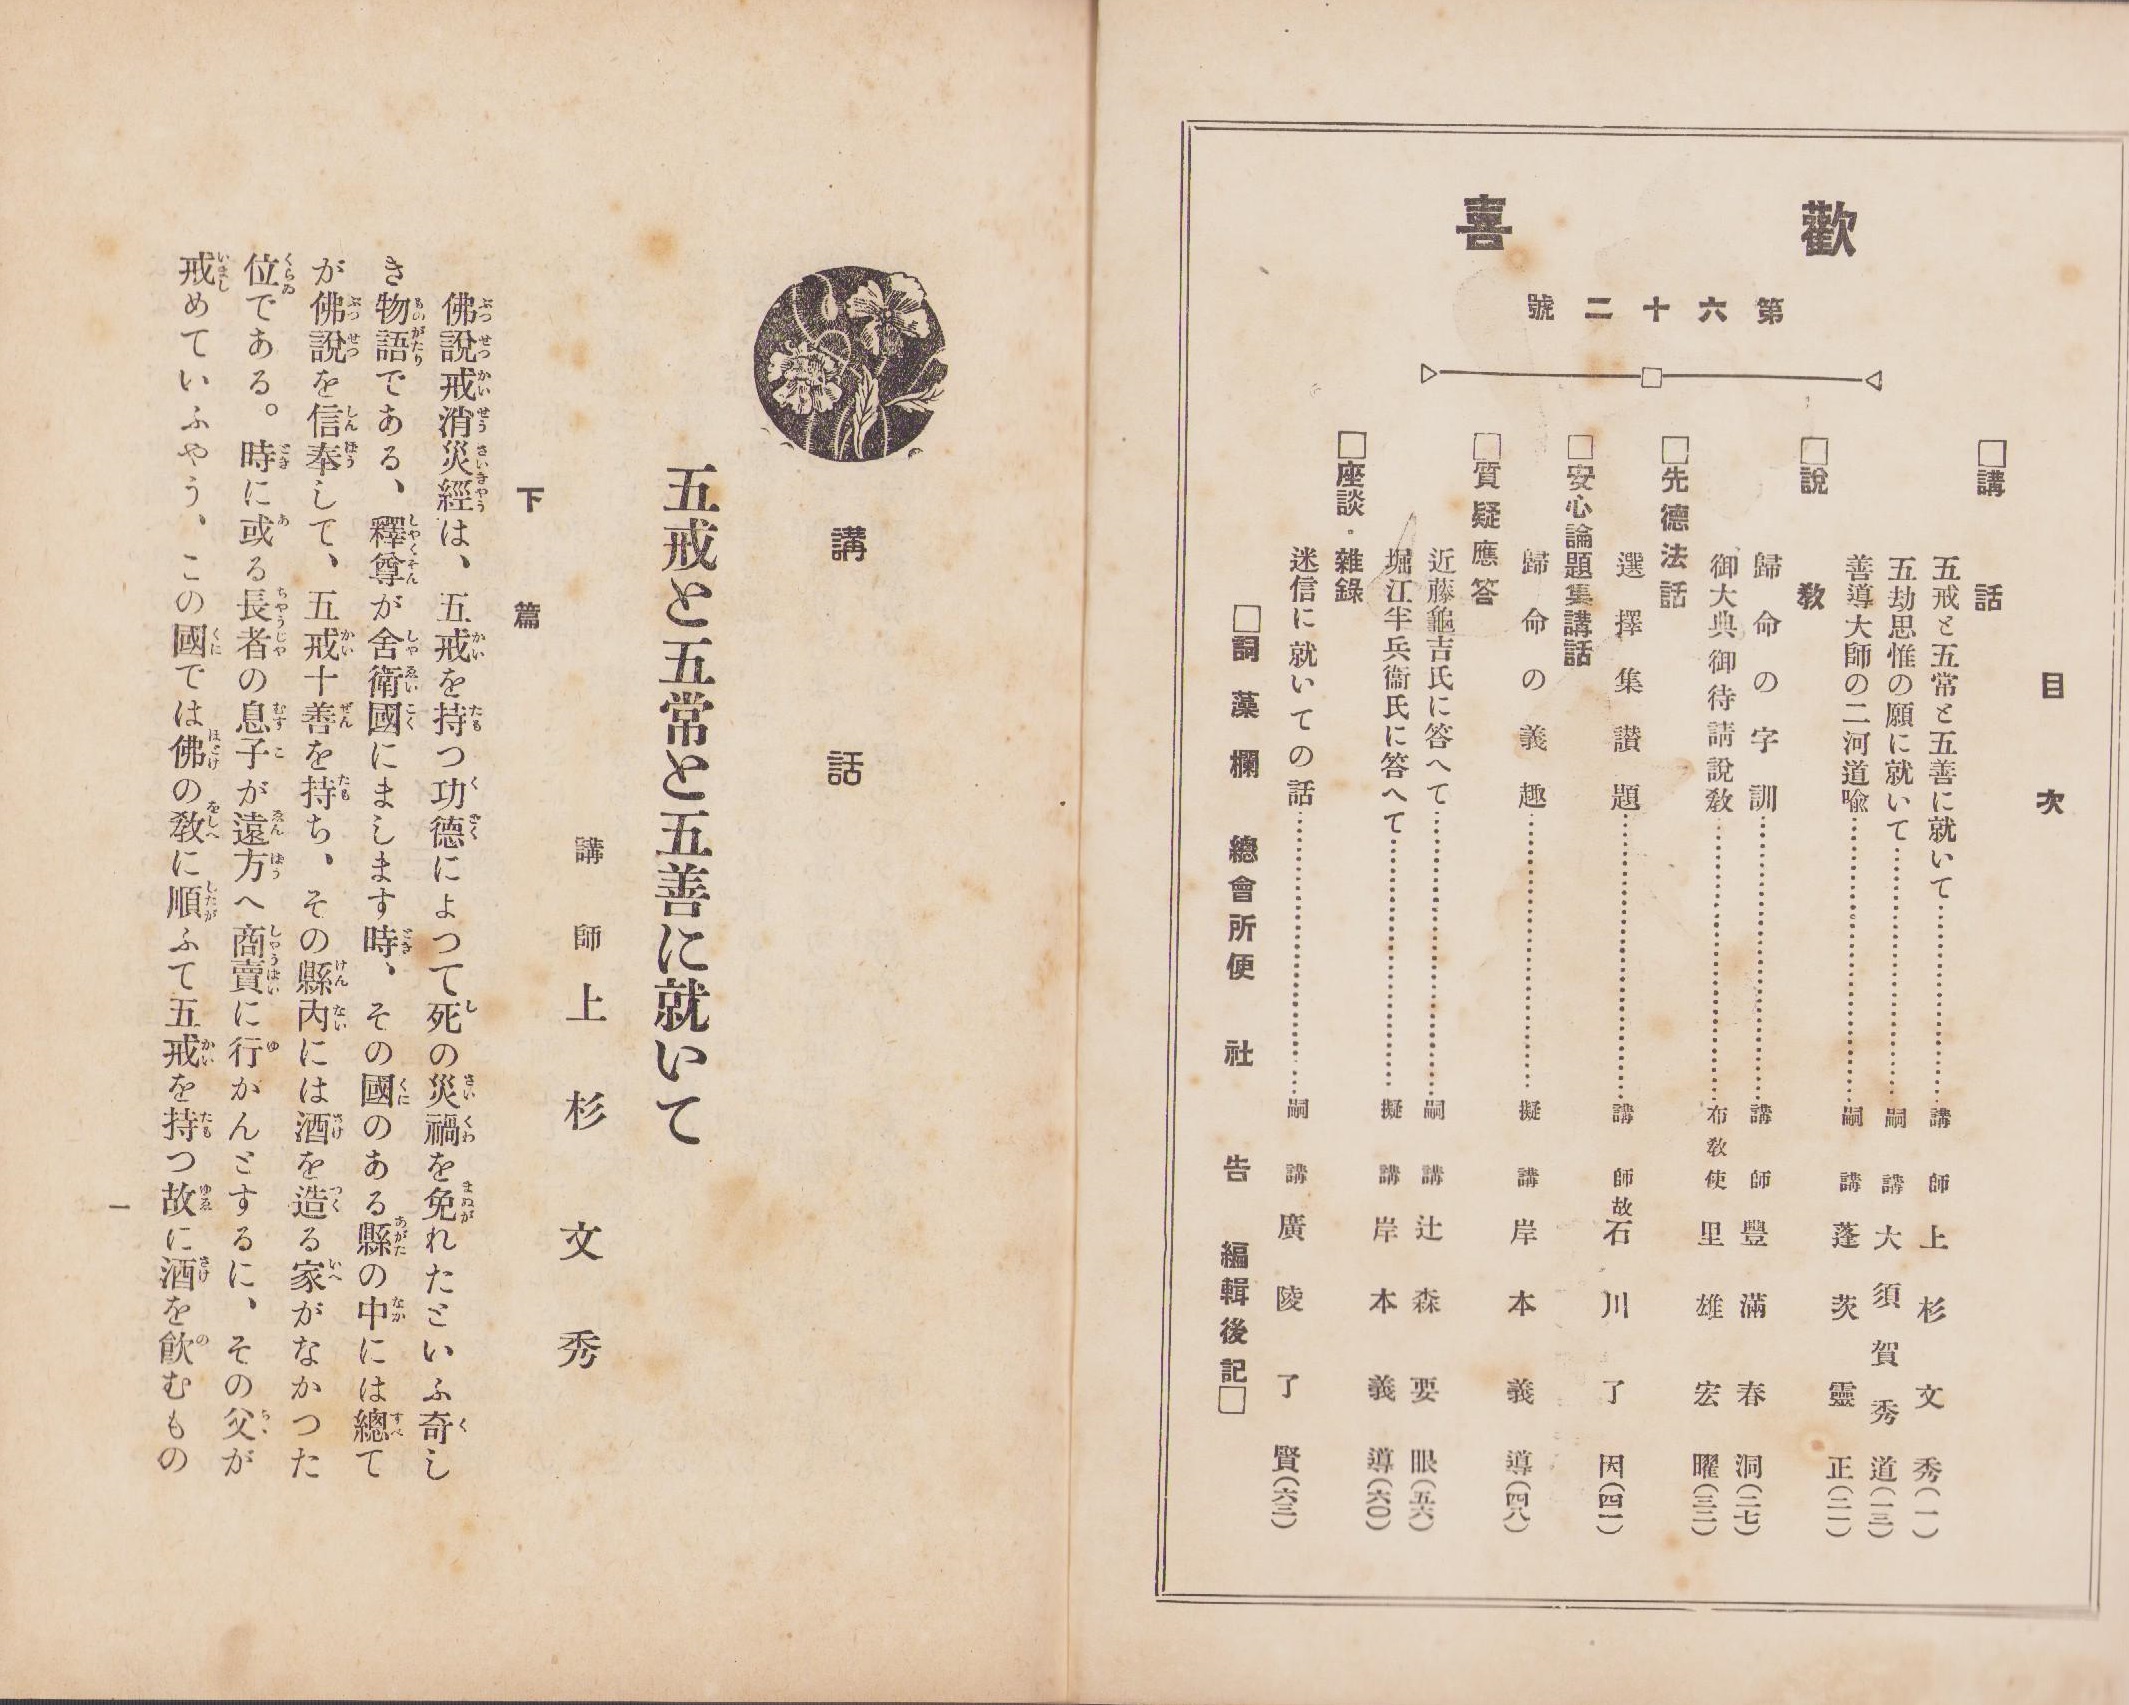 歡喜
第六十二號
目次
□講話
五戒と五常と五善に就いて……講師 上杉文秀(一)
五劫思惟の願に就いて……嗣講 大須賀秀道(一三)
善導大師の二河道喩……嗣講 蓬茨靈正(二一)
□說敎
歸命の字訓……講師 豐滿春洞(二七)
御大典御待請說敎……布敎使 里雄宏曜(三二)
□先德法話
選擇集讃題……講師 故石川了因(四一)
□安心論題集講話
歸命の義趣……擬講 岸本義導(四八)
□質疑應答
近藤龜吉氏に答へて……嗣講 辻森要眼(五六)
堀江半兵衞氏に答へて……擬講 岸本義導(六〇)
□座談・雜錄
迷信に就いての話……嗣講 廣陵了賢(六三)
□詞藻欄 總會所便 社告 編輯後記□
講話
五戒と五常と五善に就いて
講師 上杉文秀
下篇
佛說戒消災經は、五戒を持つ功德によつて死の災禍を免れたといふ奇し
き物語である、釋尊が舍衛國にまします時、その國のある縣の中には總て
が佛說を信奉して、五戒十善を持ち、その縣內には酒を造る家がなかつた
位である。時に或る長者の息子が遠方へ商賣に行かんとするに、その父が
戒めていふやう、この國では佛の敎に順ふて五戒を持つ故に酒を飮むもの
一